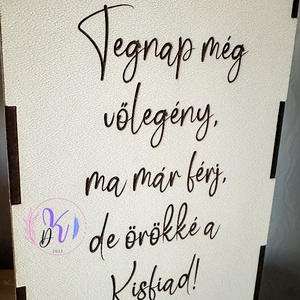 Tegnap még
vőlegény,
ma már férj,
de örökké a
Kisfiad!
DK
2023